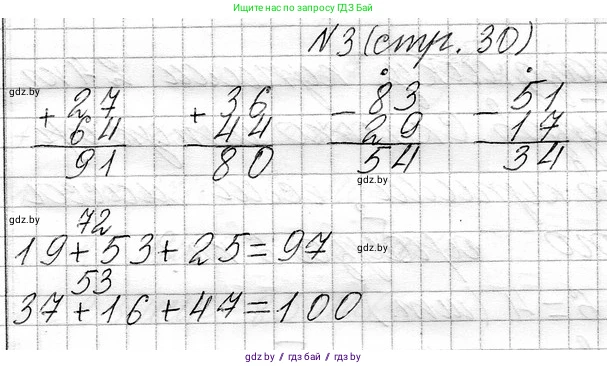 Ищите нас по запросу GDZ.BY, ГДЗ.БАЙ
N3 (стр. 30)
gdz.by
+ 27 + 36 - 83 - 51
64 44 29 17
91 80 54 34
gdz.by
gdz.by
72
19+53+25=97
gdz.by
53
37+16+47=100
gdz.by // гдз бай // гдз by